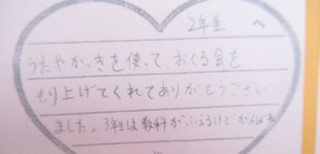 2年生 へ
うたやがっきを使って おくる会を
もり上げてくれてありがとうござい
ました。3年生は教科がふえるけどがんばっ